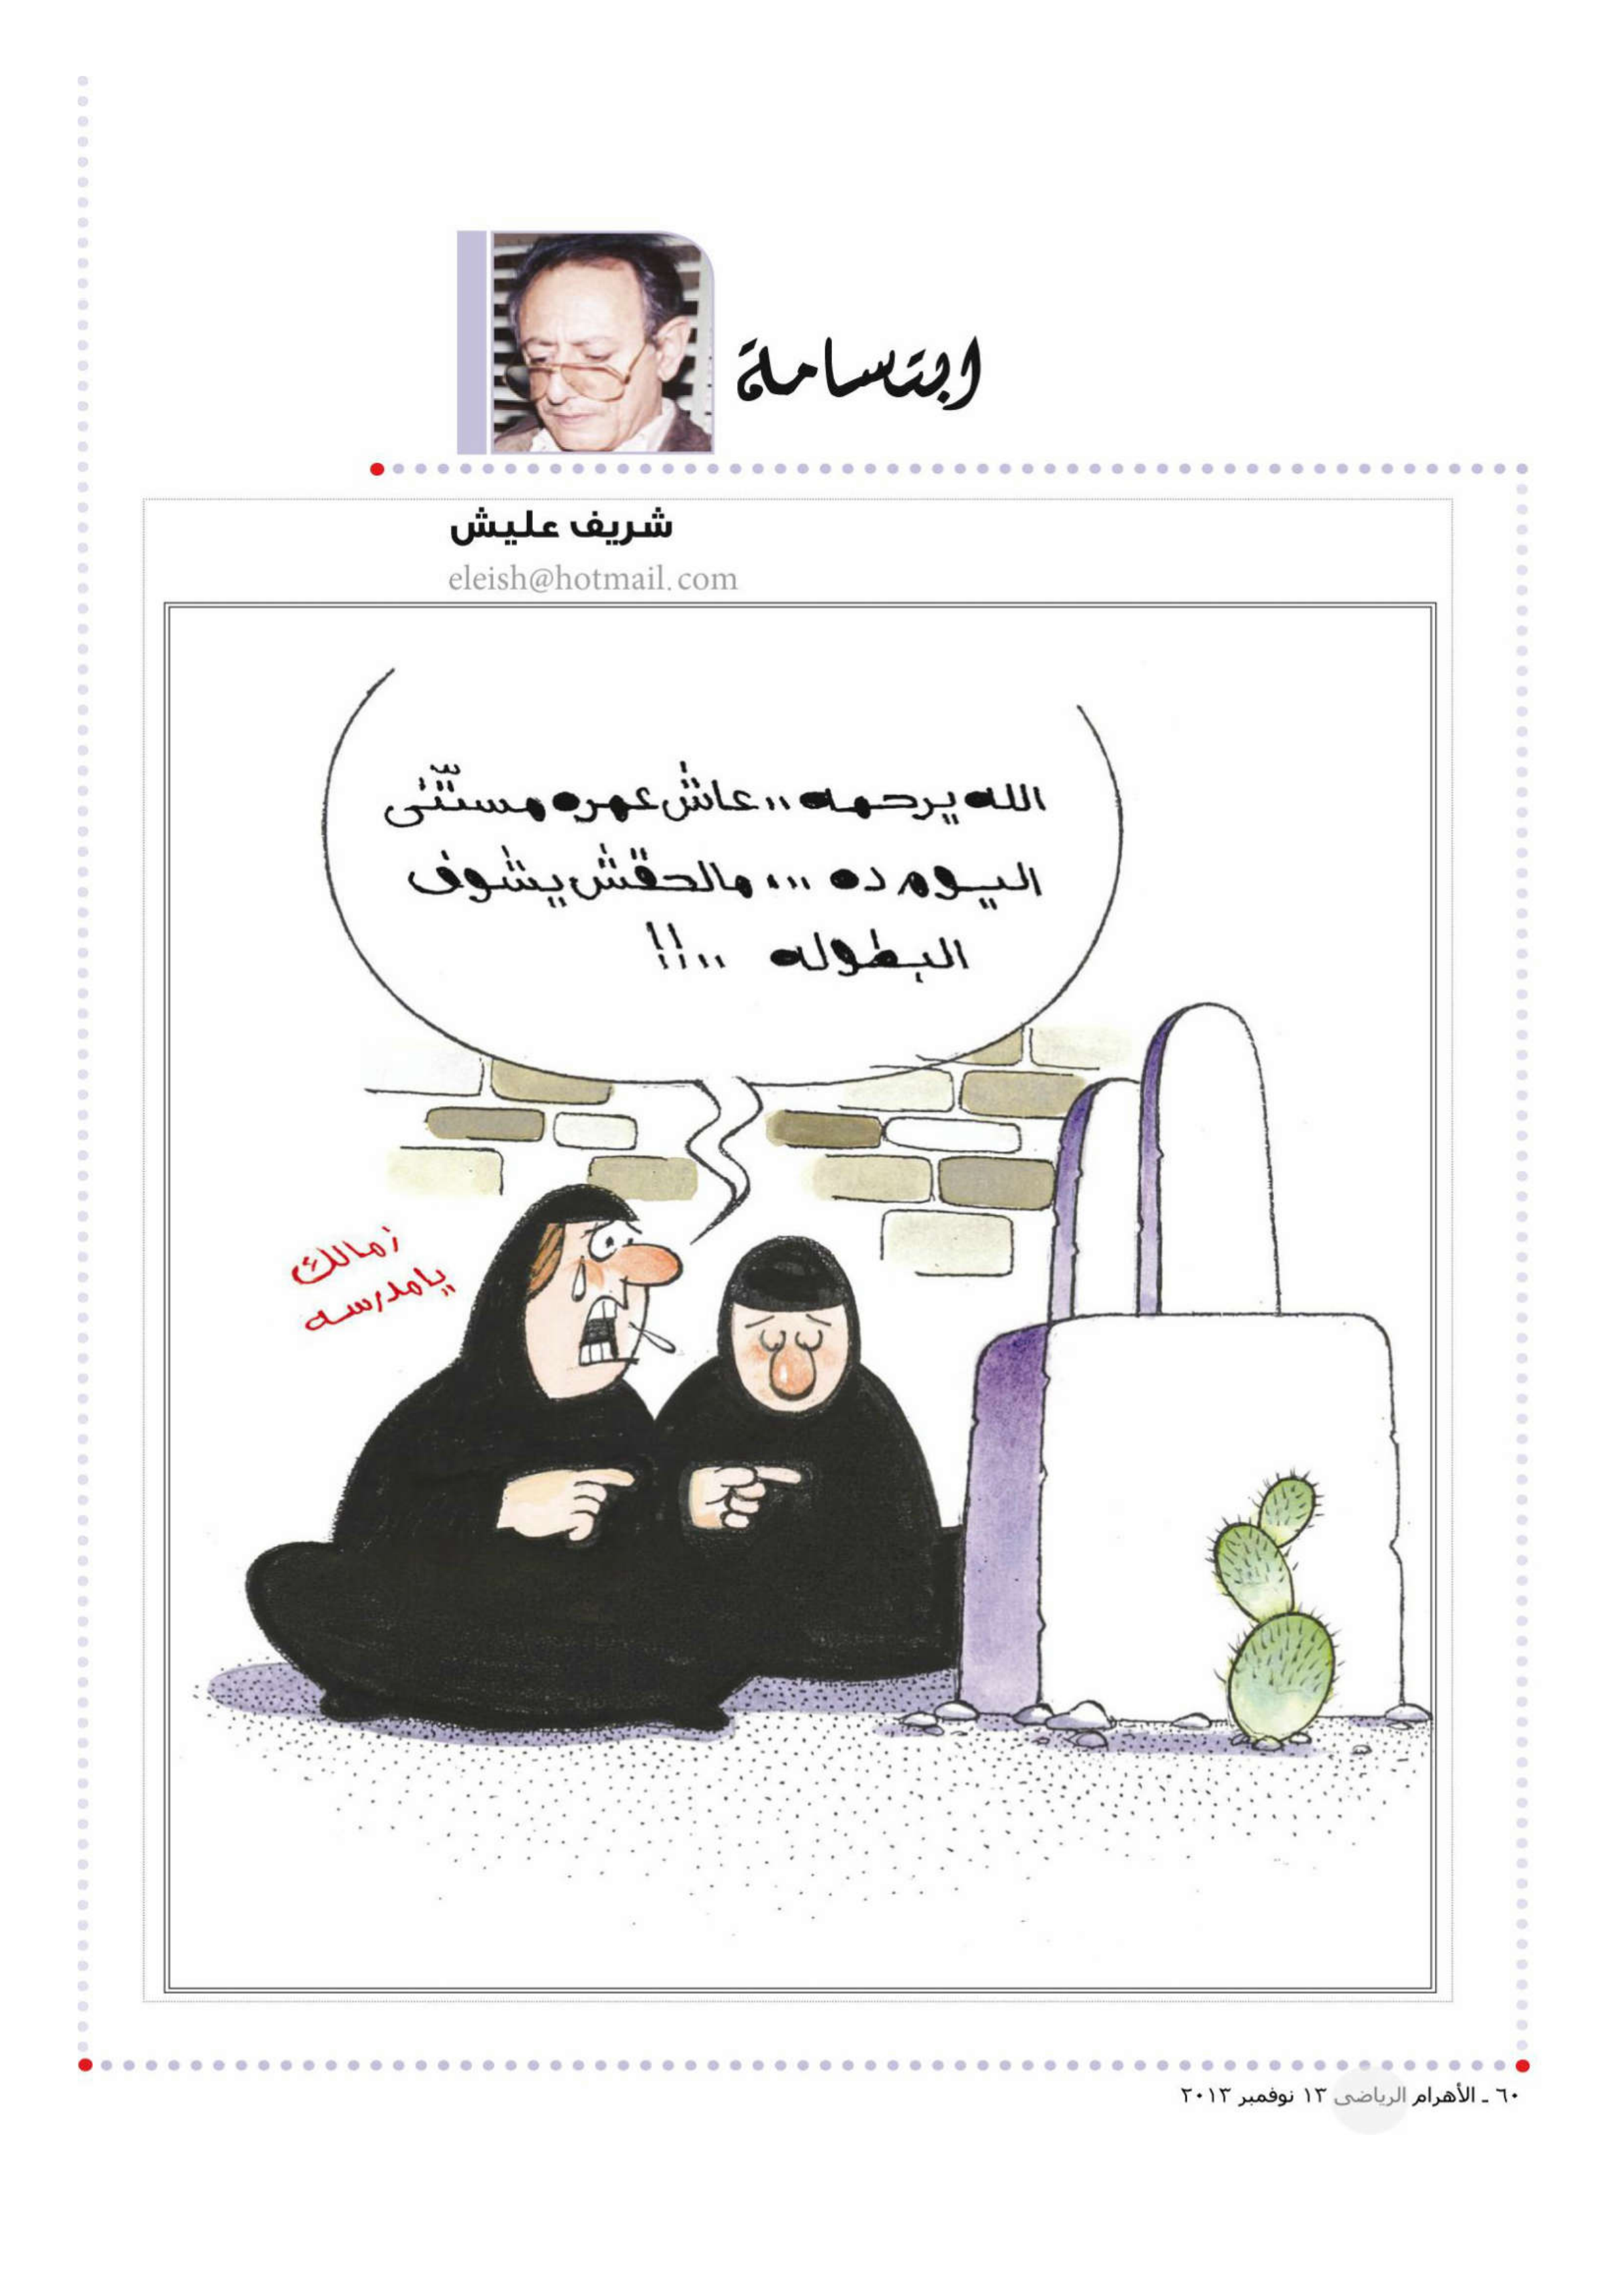 ابتسامة
شريف عليش
eleish@hotmail.com
الله يرحمه ،، عاش عمره مستنّى
اليوم ده ،،، مالحقش يشوف
البطوله ،،!!
زمالك
يا مدرسه
٦٠ ـ الأهرام الرياضى ١٣ نوفمبر ٢٠١٣